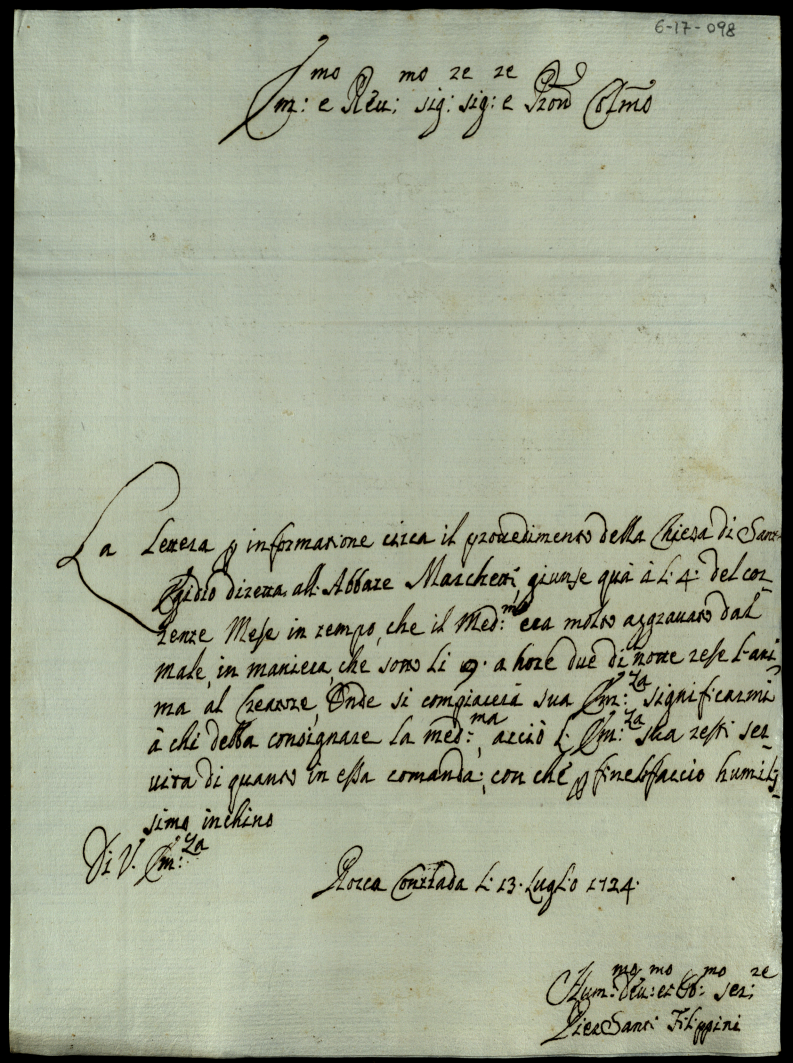 6-17-098
Em:mo e Rev:mo sig:re sig:re e Pron Colmo
La lettera p informatione circa il provedimento della Chiesa di Sant
Egidio diretta all' Abbate Marchetti, giunse quà à li 4: del cor-
rente Mese in tempo, che il Med:mo era molto aggravato dal
male, in maniera, che sotto li 9. a hore due di notte rese l'ani-
ma al Creatore, Onde si compiacerà sua Em:za significarmi
à chi debba consignare la med:ma, acciò l' Em:za sua resti ser-
vita di quanto in essa comanda; con che p fine lo faccio humilis-
simo inchino
Di V. Em:za
Rocca Contrada li 13. Luglio 1724.
Hum:mo Dev:mo et Ob:mo ser:re
Pier Santi Filippini